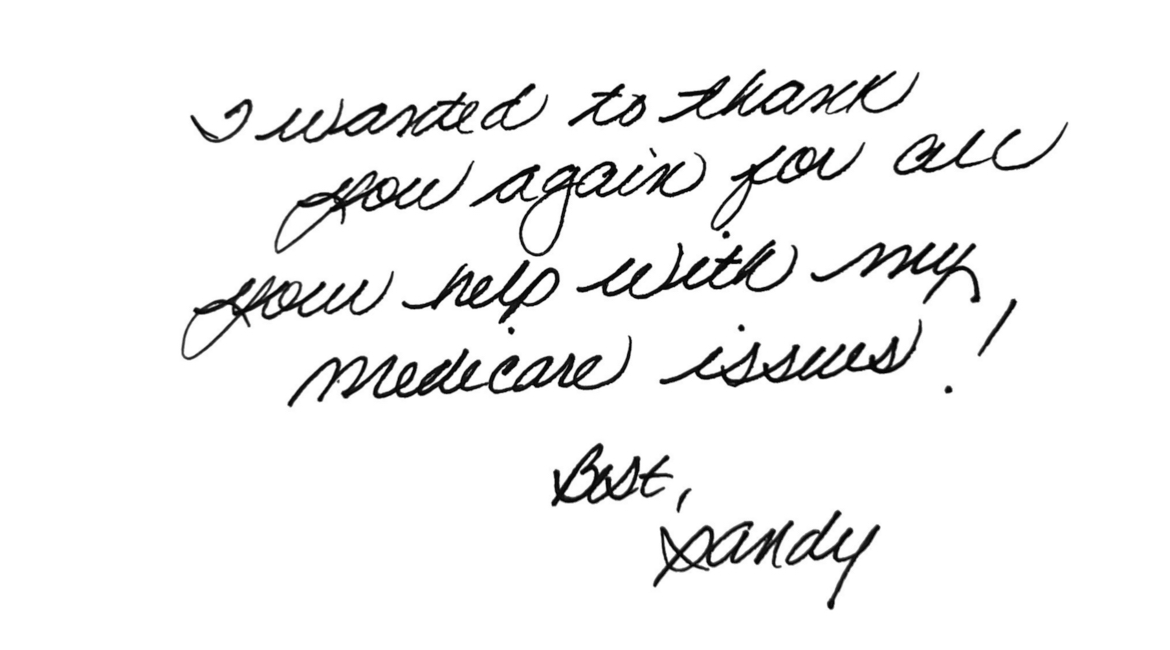 I wanted to thank
you again for all
your help with my
medicare issues!
Best,
Sandy